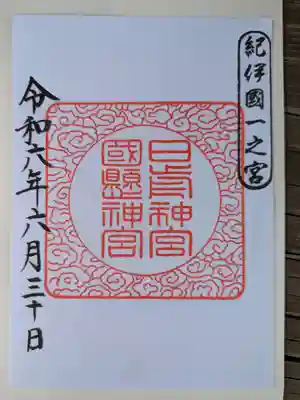 紀伊國一之宮
日前神宮
國懸神宮
令和六年六月三十日